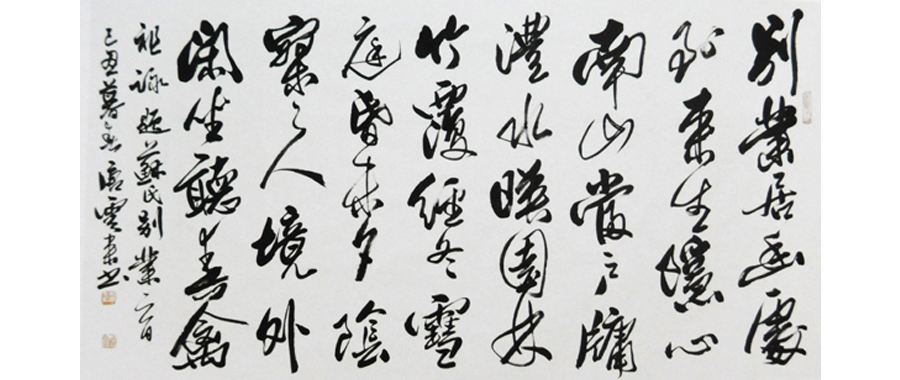 別業居幽處
到來生隱心
南山當戶牖
澧水暎園林
竹覆經冬雪
庭昏未夕陰
寥々人境外
閑坐聽春禽
祖詠題蘇氏別業一首
己丑暮春書